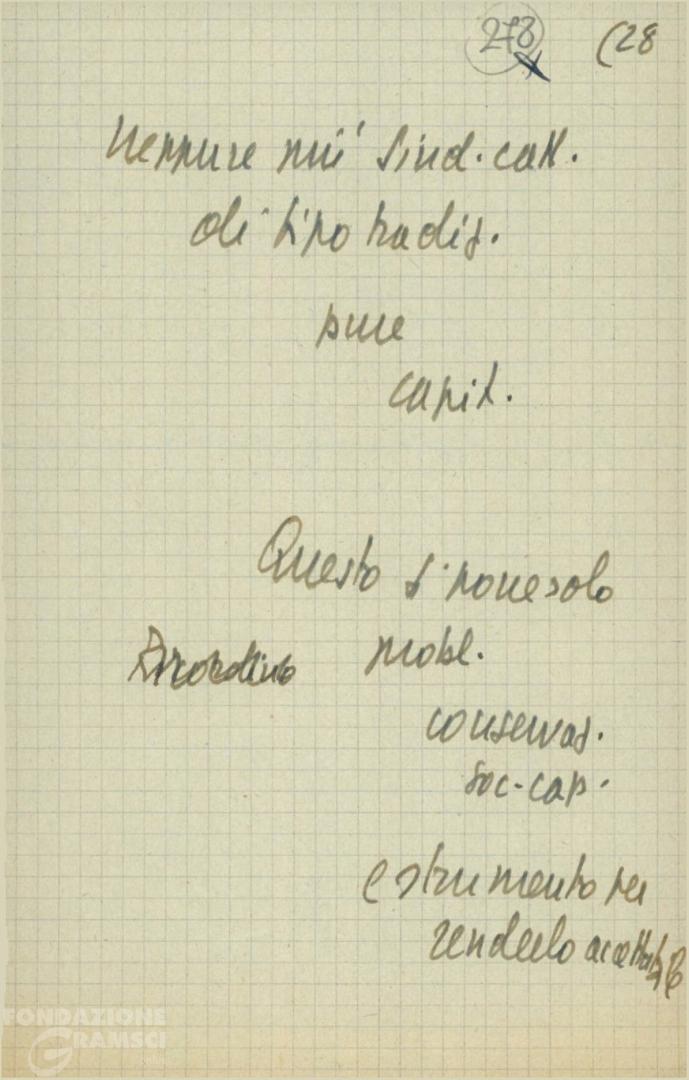 278 (28
neppure più sind. catt.
di tipo tradiz.
pure
capit.
Questo si pone solo
probl.
conservaz.
soc-cap.
e strumento per
renderlo accettabile
FONDAZIONE
GRAMSCI